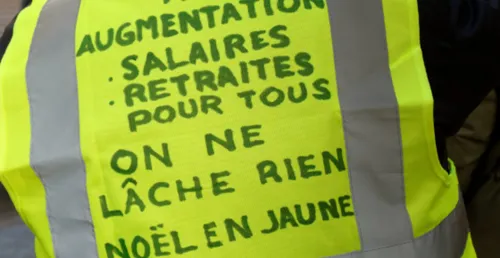 AUGMENTATION
• SALAIRES
• RETRAITES
POUR TOUS
ON NE
LÂCHE RIEN
NOËL EN JAUNE